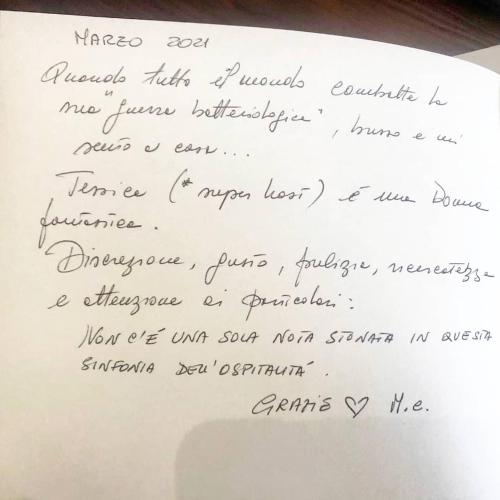 MARZO 2021
Quando tutto il mondo combatte la
sua "guerra batteriologica", busso e mi
sento a casa...
Jessica (* super host) è una Donna
fantastica.
Discrezione, gusto, pulizia, ricercatezza
e attenzione ai particolari:
NON C'É UNA SOLA NOTA STONATA IN QUESTA
SINFONIA DELL'OSPITALITÁ.
GRAZIE ♡ M.C.